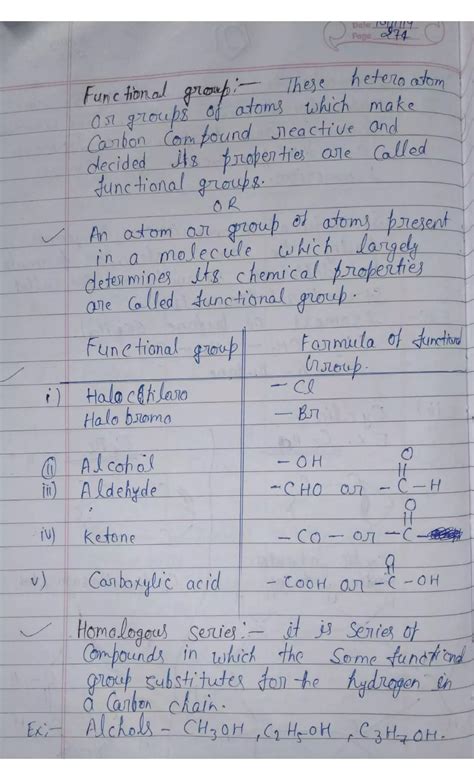 Date
Page 271
Functional group:- These heteroatom
or groups of atoms which make
Carbon Compound reactive and
decided its properties are Called
functional groups.
OR
An atom or group of atoms present
in a molecule which largely
determines its chemical properties
are Called functional group.
Functional group Formula of functional Group.
i) Halo -Cl
Halo bromo -Br
ii) Alcohol -OH
iii) Aldehyde -CHO or -C-H
O
iv) Ketone -CO- or -C-
O
v) Carboxylic acid -COOH or -C-OH
O
Homologous series:- it is series of
Compounds in which the Some functiond
group substitutes for the hydrogen in
a Carbon chain.
Ex:- Alchols - CH3OH, C2H5OH, C3H7OH.